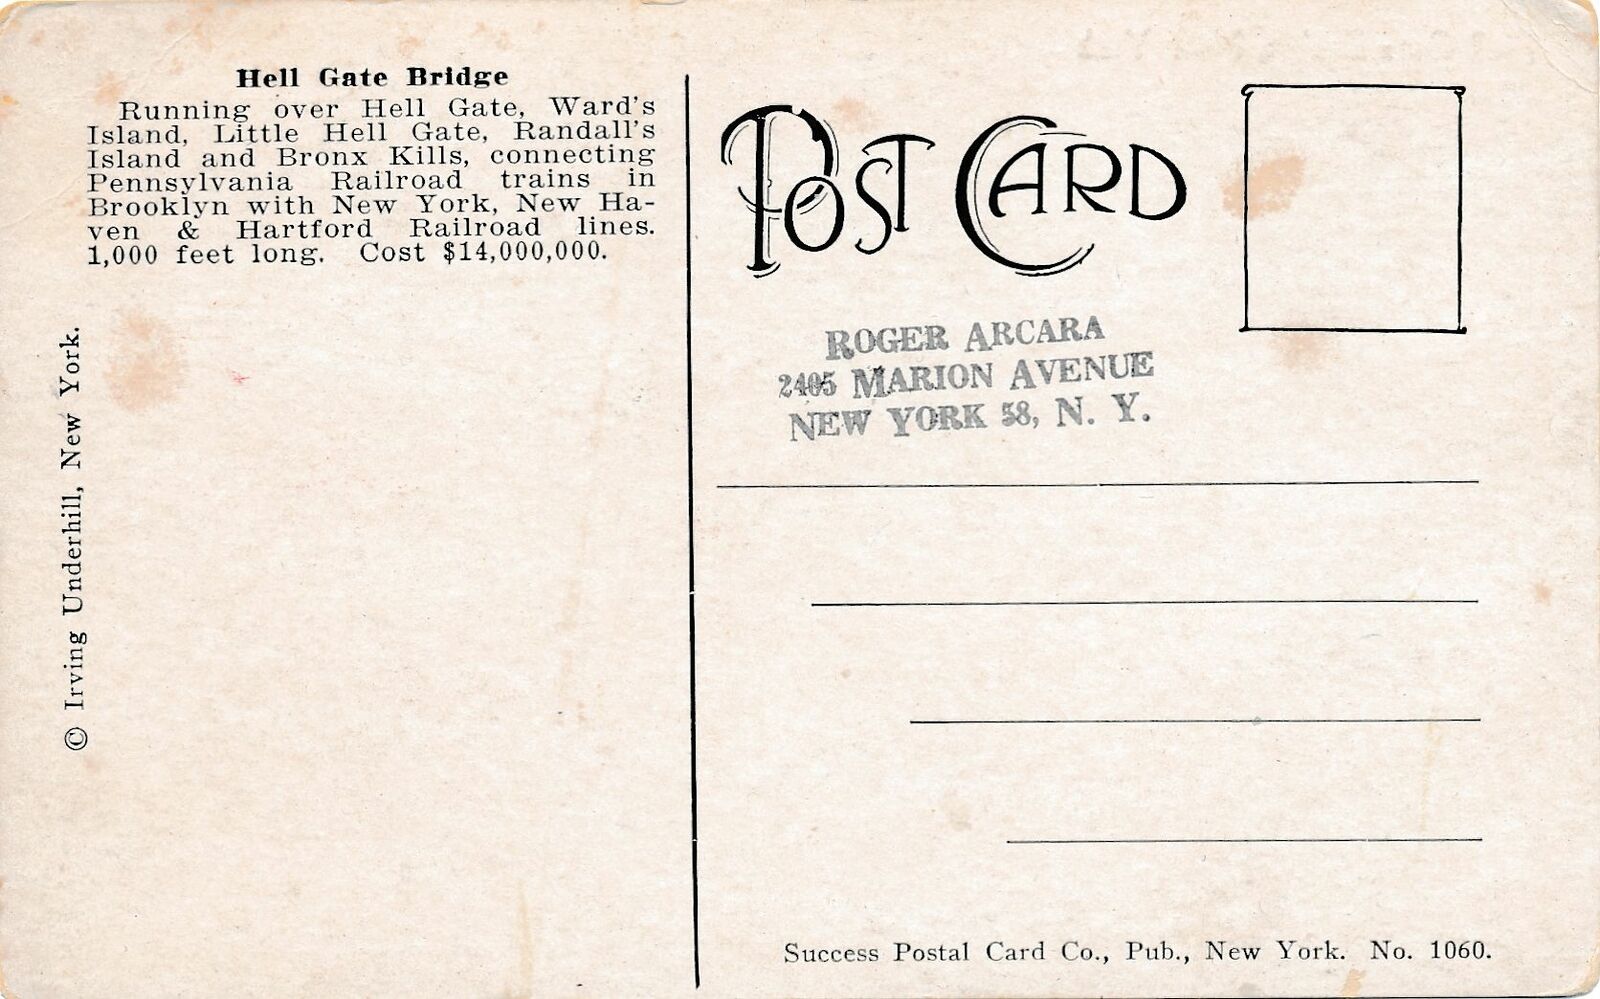 Hell Gate Bridge
Running over Hell Gate, Ward's
Island, Little Hell Gate, Randall's
Island and Bronx Kills, connecting
Pennsylvania Railroad trains in
Brooklyn with New York, New Ha-
ven & Hartford Railroad lines.
1,000 feet long. Cost $14,000,000.
© Irving Underhill, New York.
POST CARD
ROGER ARCARA
2405 MARION AVENUE
NEW YORK 58, N. Y.
Success Postal Card Co., Pub., New York. No. 1060.